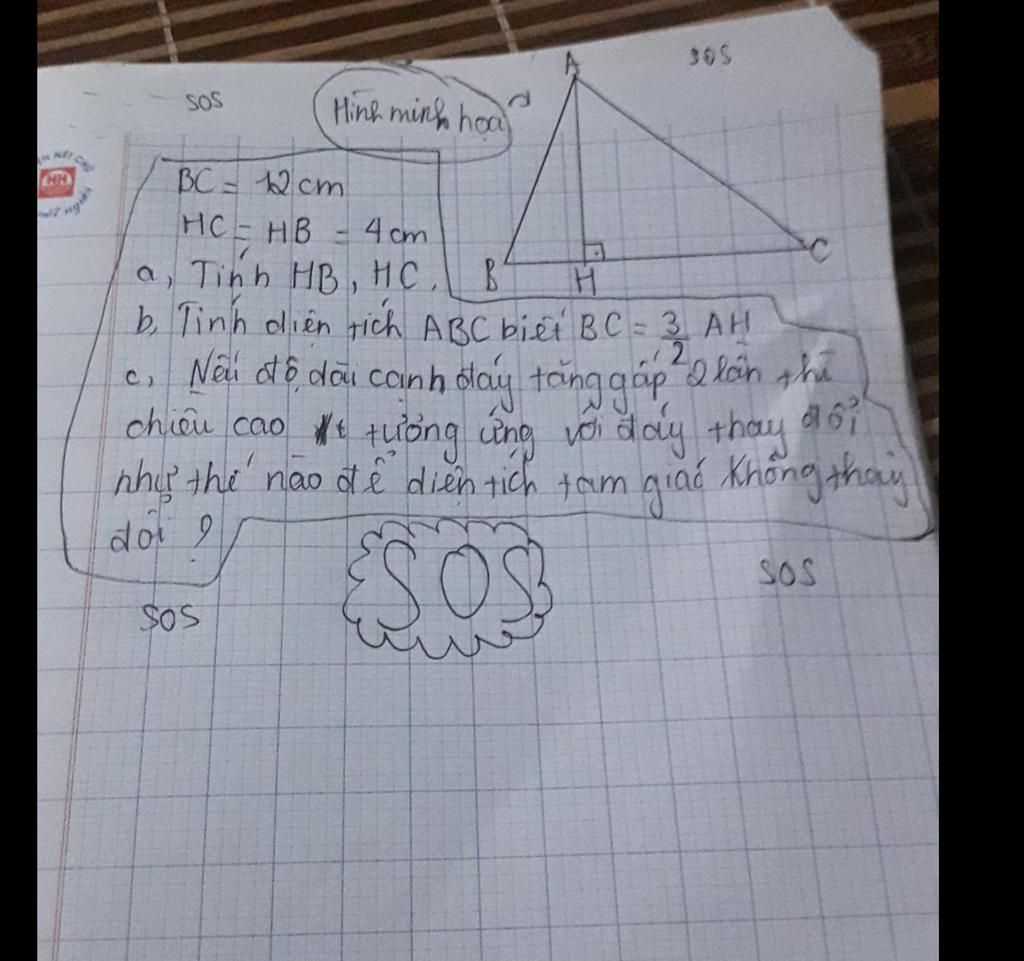 SOS
SOS
Hình minh họa
A
BC = 12 cm
HC = HB = 4 cm
B
H
C
a, Tính HB, HC.
b, Tính diện tích ABC biết BC = 3/2 AH
c, Nếu độ dài cạnh đáy tăng gấp 2 lần thì
chiều cao tưởng ứng với đáy thay đổi
như thế nào để diện tích tam giác không thay
đổi ?
SOS
SOS
SOS
HN